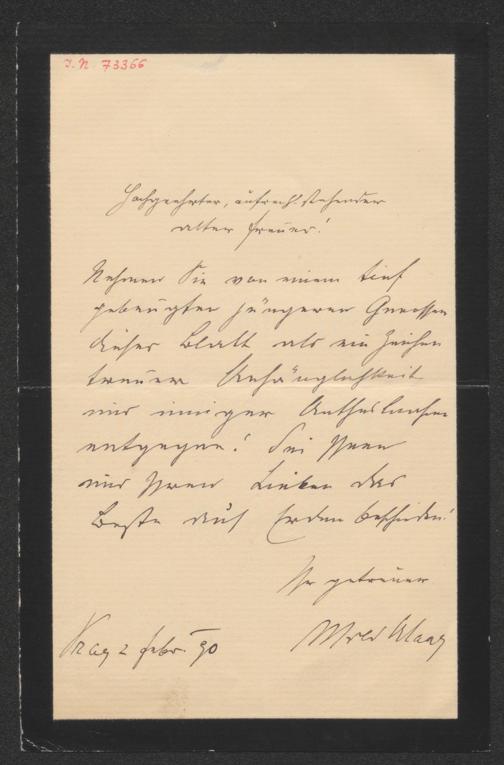 I.N. 73366
Hochgeehrter, aufrecht stehender
alter Freund!
Nehmen Sie von einem tief
gebeugten jüngeren Genossen
dieses Blatt als ein Zeichen
treuer Anhänglichkeit
und inniger Antheilnahme
entgegen! Sei Ihnen
und Ihren Lieben das
Beste auf Erden beschieden!
Ihr getreuer
Alfred Klaar
Prag 2 Febr. 90